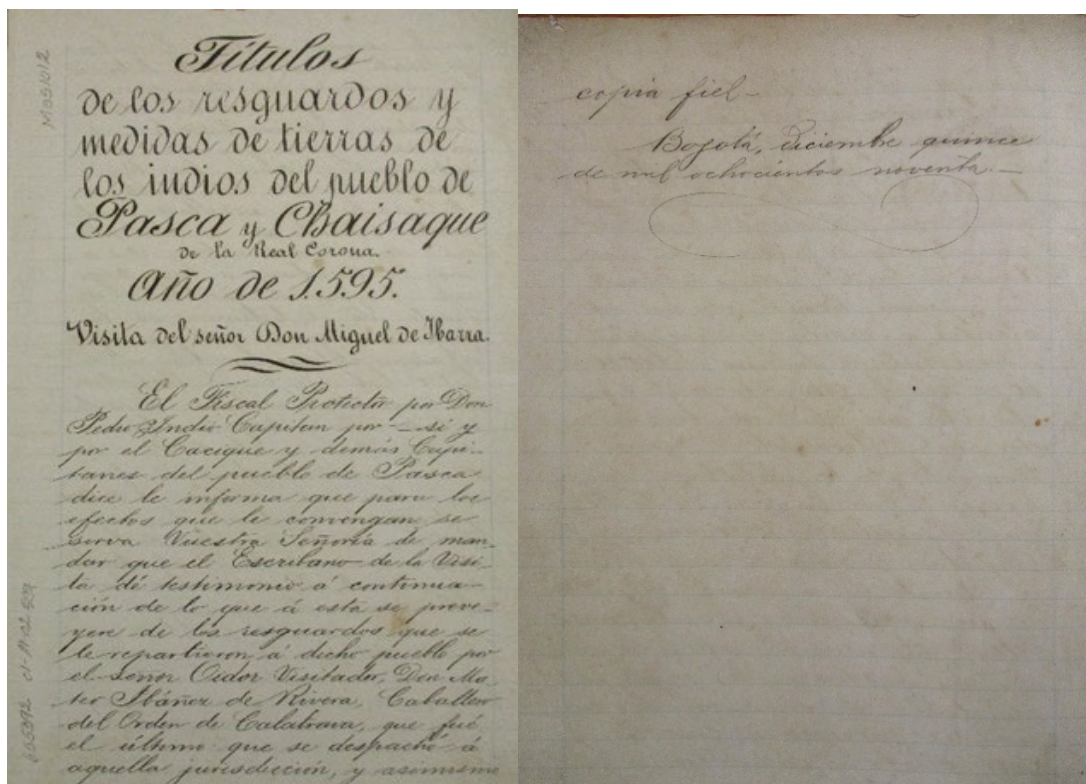 Títulos
de los resguardos y
medidas de tierras de
los indios del pueblo de
Pasca y Chaisaque
de la Real Corona.
Año de 1.595.
Visita del señor Don Miguel de Ibarra.
El Fiscal Protector por Don
Pedro, Indio Capitan por sí y
por el Cacique y demás Capi-
tanes del pueblo de Pasca
dice le informa que para los
efectos que le convengan se
sirva Vuestra Señoría de man-
dar que el Escribano de la Visi-
ta dé testimonio á continua-
ción de lo que á esta se prove-
yere de los resguardos que se
le repartieron á dicho pueblo por
el señor Oidor Visitador, Don Ma-
teo Ibáñez de Rivera, Caballero
del Orden de Calatrava, que fué
el último que se despachó á
aquella jurisdicción, y asimismo
copia fiel-
Bogotá, diciembre quince
de mil ochocientos noventa.-